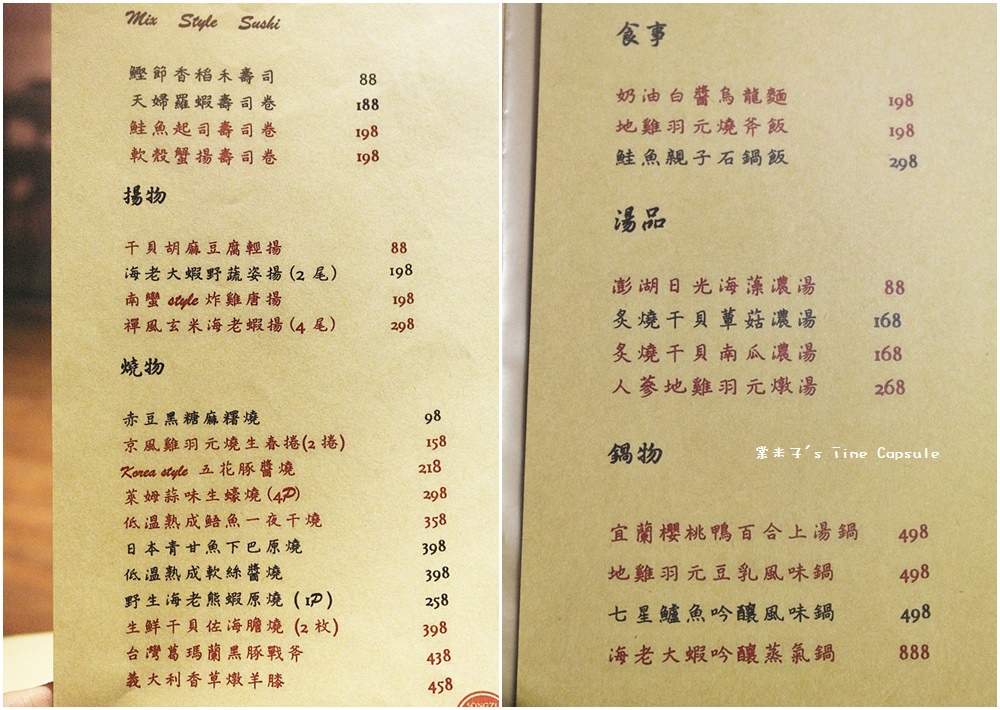 Mix Style Sushi
鰹節香稻禾壽司 88
天婦羅蝦壽司卷 188
鮭魚起司壽司卷 198
軟殼蟹揚壽司卷 198
揚物
干貝胡麻豆腐輕揚 88
海老大蝦野蔬姿揚(2 尾) 198
南蠻 style 炸雞唐揚 198
禪風玄米海老蝦揚(4 尾) 298
燒物
赤豆黑糖麻糬燒 98
京風雞羽元燒生春捲(2 捲) 158
Korea style 五花豚醬燒 218
萊姆蒜味生蠔燒(4P) 298
低溫熟成鯃魚一夜干燒 358
日本青甘魚下巴原燒 398
低溫熟成軟絲醬燒 398
野生海老熊蝦原燒 (1P) 258
生鮮干貝佐海膽燒 (2 枚) 398
台灣葛瑪蘭黑豚戰斧 438
義大利香草燉羊膝 458
SONGZI
食事
奶油白醬烏龍麵 198
地雞羽元燒斧飯 198
鮭魚親子石鍋飯 298
湯品
澎湖日光海藻濃湯 88
炙燒干貝蕈菇濃湯 168
炙燒干貝南瓜濃湯 168
人蔘地雞羽元燉湯 268
鍋物
葉未子's Time Capsule
宜蘭櫻桃鴨百合上湯鍋 498
地雞羽元豆乳風味鍋 498
七星鱸魚吟釀風味鍋 498
海老大蝦吟釀蒸氣鍋 888